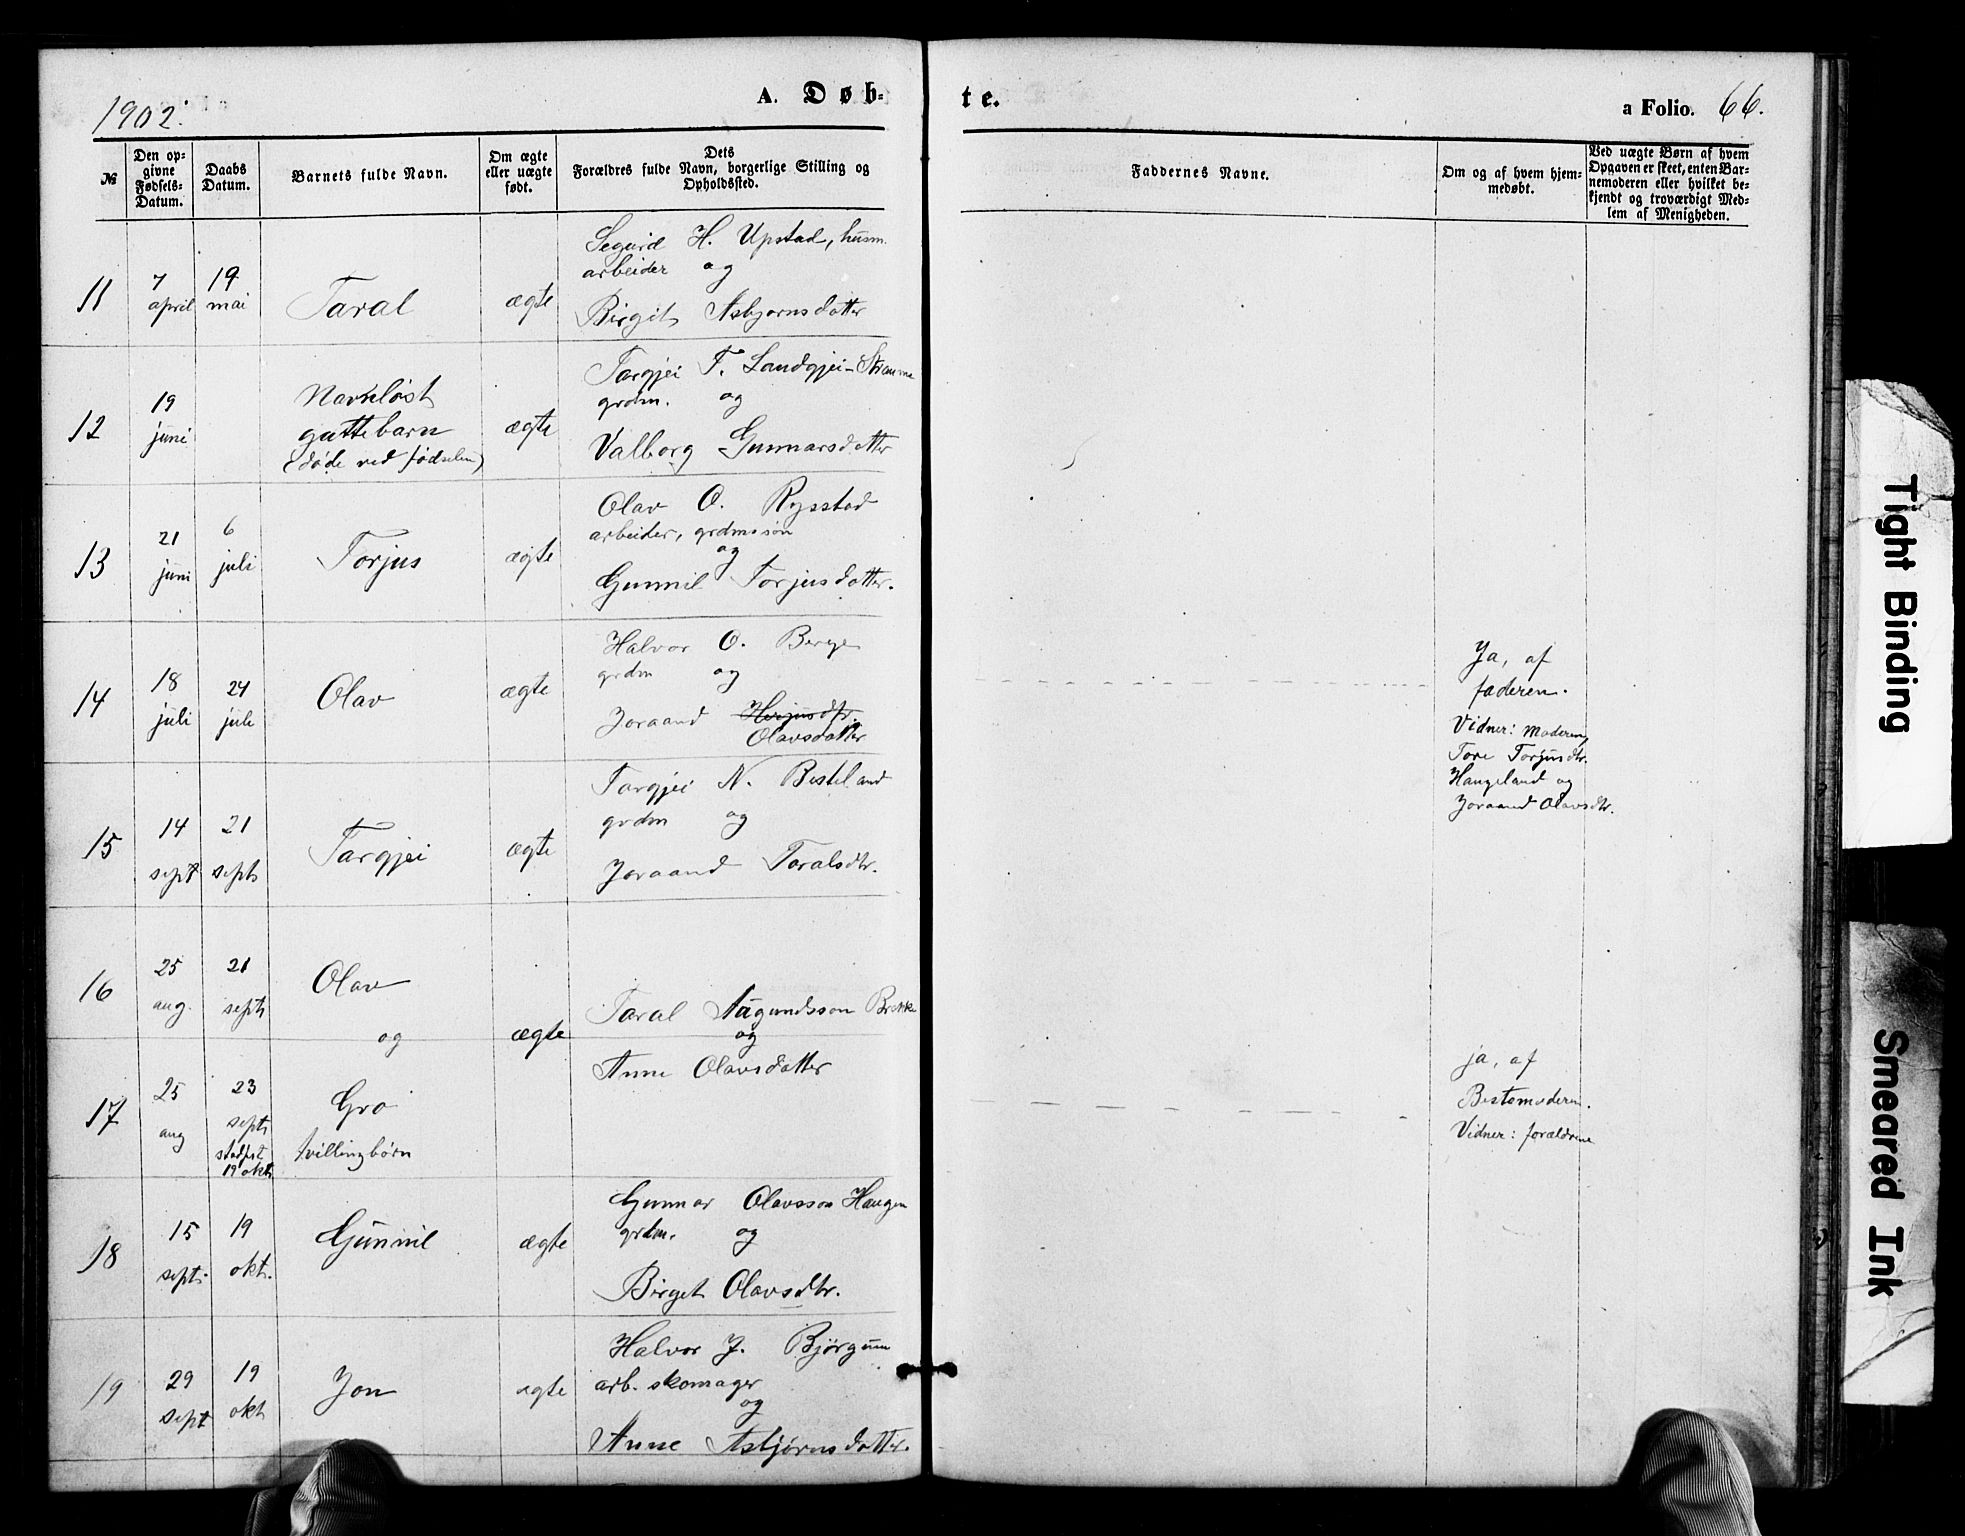 1902.
A. Døb-
te.
a Folio. 66.
№
Den op-
givne
Fødsels-
Datum.
Daabs
Datum.
Barnets fulde Navn.
Om ægte
eller uægte
født.
Dets
Forældres fulde Navn, borgerlige Stilling og
Opholdssted.
Faddernes Navne.
Om og af hvem hjem-
medøbt.
Ved uægte Børn af hvem
Opgaven er skeet, enten Bar-
nemoderen eller hvilket be-
kjendt og troværdigt Med-
lem af Menigheden.
11
7
april
19
mai
Taral
ægte
Segurd H. Upstad, husm.
arbeider og
Birgit Asbjornsdatter
12
19
juni
Navnløst
guttebarn
(døde ved fødselen)
ægte
Targjei T. Landgjei-Straume
grdm. og
Valborg Gunnarsdatter
13
21
juni
6
juli
Torjus
ægte
Olav O. Rysstad
arbeider, grdmssøn
og
Gunnil Torjusdatter.
14
18
juli
24
juli
Olav
ægte
Halvor O. Berge
grdm og
Joraand Herjusdtr.
Olavsdatter
Ja, af
faderen.
Vidner: Moderen,
Tore Torjusdtr.
Haugeland og
Joraand Olavsdtr.
15
14
sept
21
sept
Targjei
ægte
Targjei N. Besteland
grdm og
Joraand Toralsdtr.
16
25
aug.
21
sept
Olav
og
ægte
Taral Aagundsson Brokke
og
Anne Olavsdatter
17
25
aug
23
sept
stadfest
19 okt.
Gro
tvillingbørn
ja, af
Bestemoderen.
Vidner: forældrene
18
15
sept.
19
okt.
Gunnil
ægte
Gunnar Olavsson Haugen
grdm. og
Birget Olavsdtr.
19
29
sept
19
okt
Jon
ægte
Halvor J. Bjørgum
arb. skomager
og
Anne Asbjørnsdatter.
Tight Binding
Smeared Ink